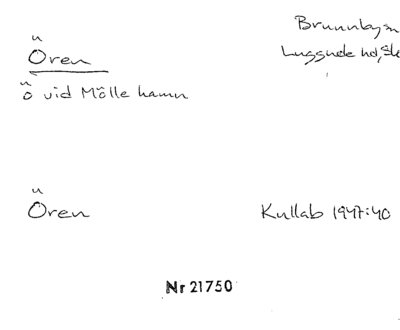 Ören
Brunnby sn
Luggude hd, Sk
ö vid Mölle hamn
Ören
Kullab 1947:40
Nr 21750